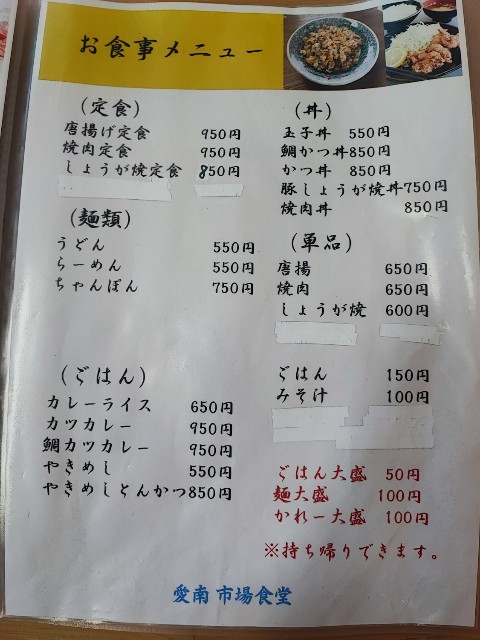 お食事メニュー
(定食)
唐揚げ定食 950円
焼肉定食 950円
しょうが焼定食 850円
(麺類)
うどん 550円
らーめん 550円
ちゃんぽん 750円
(ごはん)
カレーライス 650円
カツカレー 950円
鯛カツカレー 950円
やきめし 550円
やきめしとんかつ 850円
(丼)
玉子丼 550円
鯛かつ丼 850円
かつ丼 850円
豚しょうが焼丼 750円
焼肉丼 850円
(単品)
唐揚 650円
焼肉 650円
しょうが焼 600円
ごはん 150円
みそ汁 100円
ごはん大盛 50円
麺大盛 100円
かれー大盛 100円
※持ち帰りできます。
愛南市場食堂